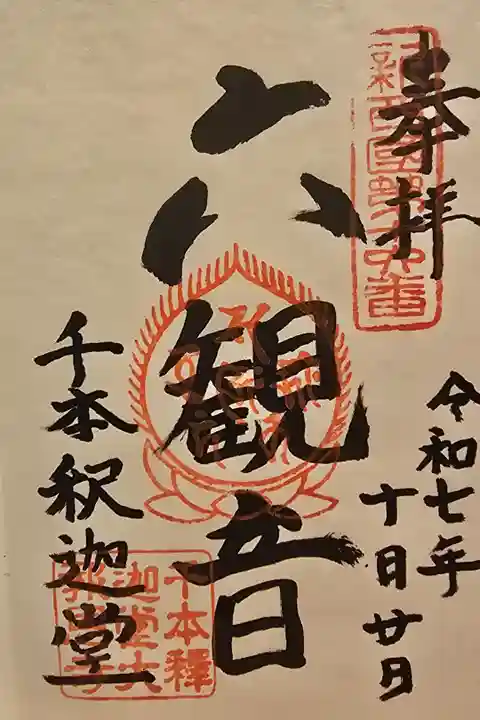 奉拝
六観音
令和七年
十月廿日
千本釈迦堂
千本釋
迦堂大
報恩寺